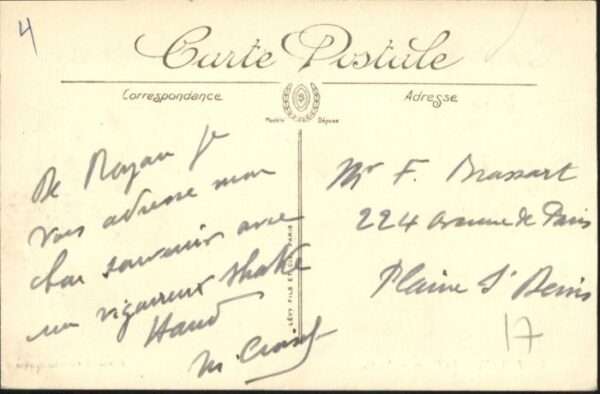 4
Carte Postale
Correspondance
Adresse
S
Modèle Déposé
De Royan je
vous adresse mon
bon souvenir avec
un vigoureux shake
Hand
M.
LÉVY FILS ET CIE, PARIS
Mr F. Brassart
224 avenue de Paris
Plaine St Denis
17